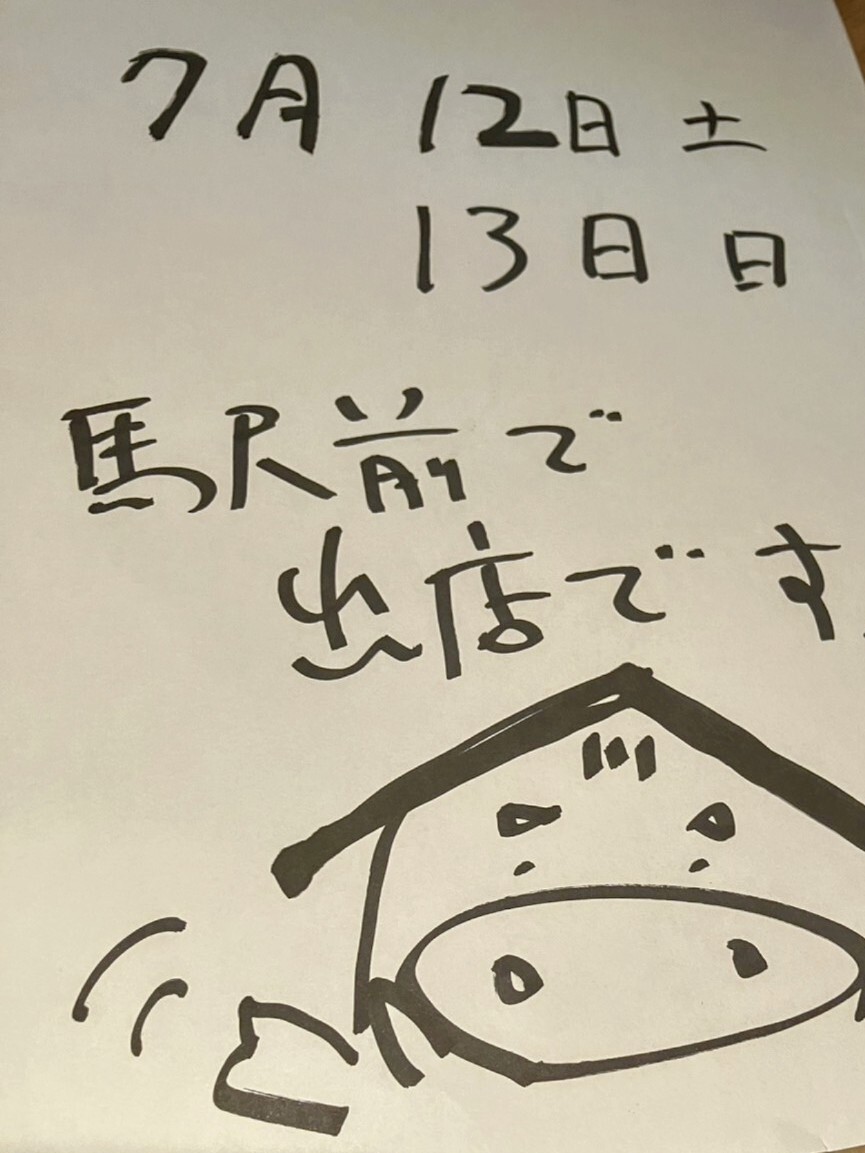 7月 12日 土
13日 日
駅前で
出店です